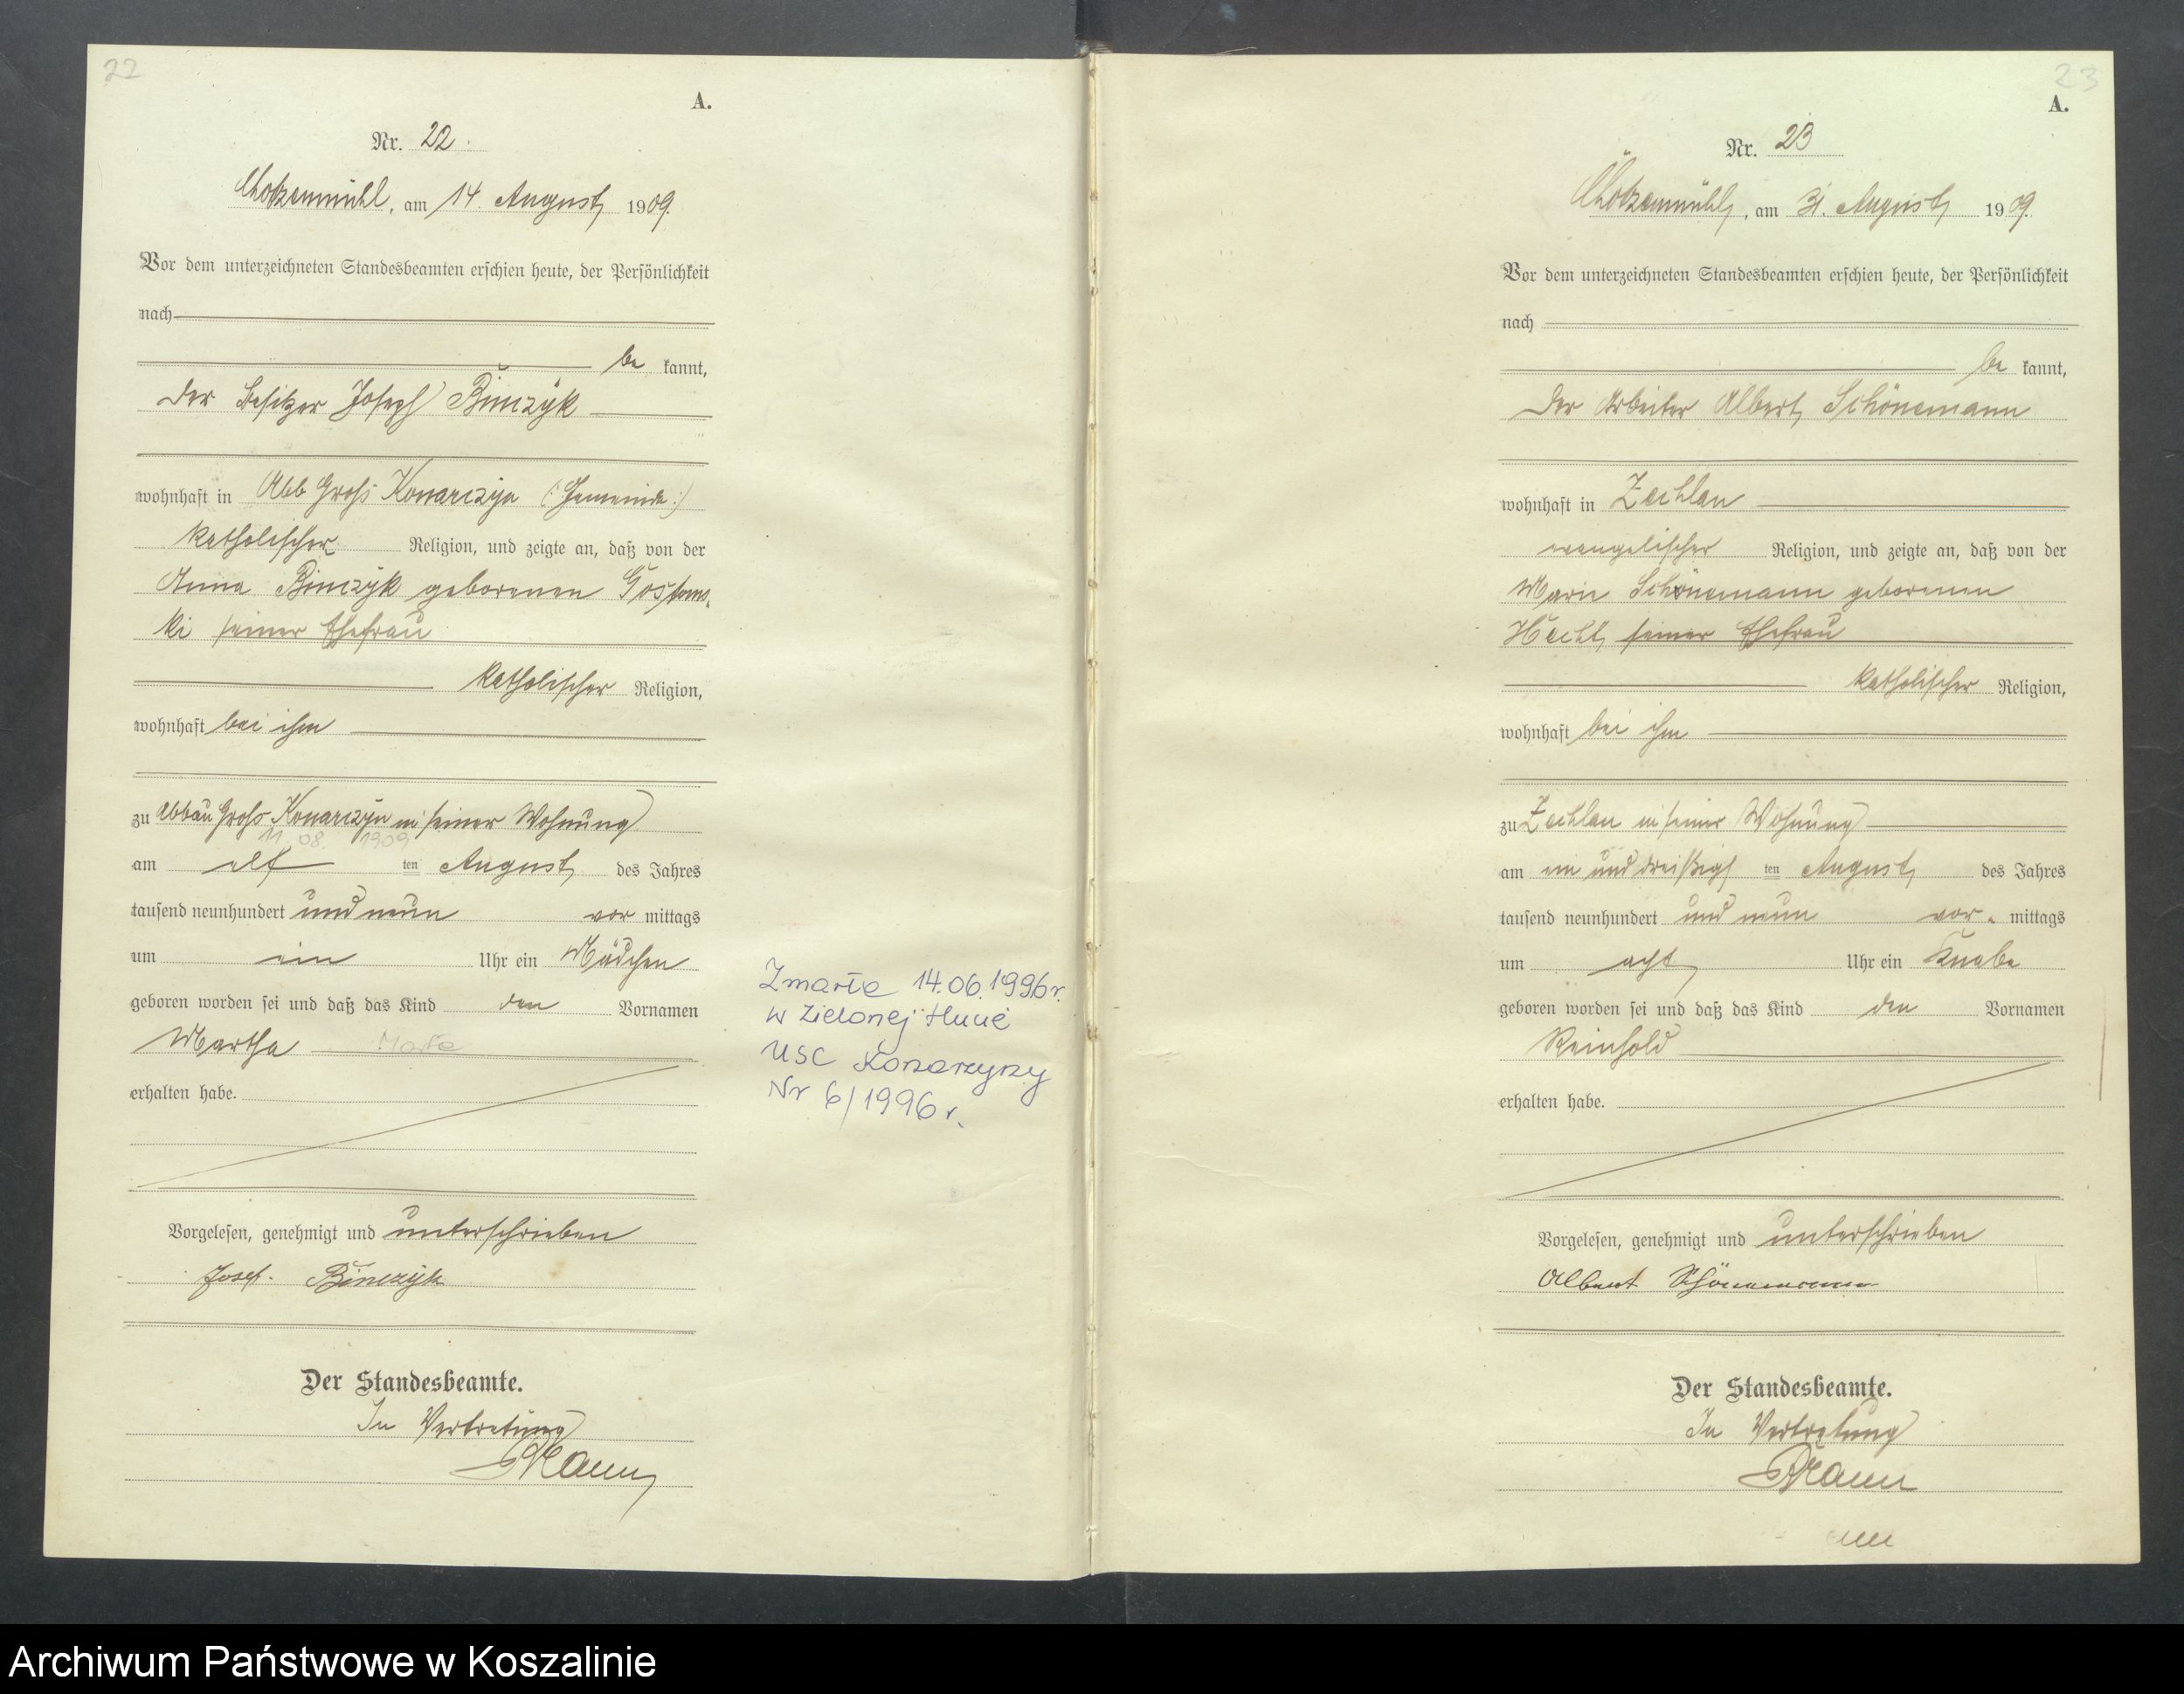 22
A.
Nr. 22.
Chotzenmühl, am 14. August 1909.
Vor dem unterzeichneten Standesbeamten erschien heute, der Persönlichkeit
nach
be kannt,
der Besitzer Joseph Binczyk
wohnhaft in Abb Groß Konarczyn (:Gemeinde:)
katholischer Religion, und zeigte an, daß von der
Anna Binczyk geborenen Gostoms-
ki seiner Ehefrau
katholischer Religion,
wohnhaft bei ihm
zu Abbau Groß Konarczyn in seiner Wohnung
11.08.1909
am elf ten August des Jahres
tausend neunhundert und neun vor mittags
um ein Uhr ein Mädchen
geboren worden sei und daß das Kind den Vornamen
Martha Marta
erhalten habe.
Vorgelesen, genehmigt und unterschrieben
Josef. Binczyk
Der Standesbeamte.
In Vertretung
Mann
Zmarła 14.06.1996r.
w Zielonej Hucie
USC Konarzyny
Nr 6/1996 r.
23
A.
Nr. 23
Chotzenmühl, am 31. August 1909.
Vor dem unterzeichneten Standesbeamten erschien heute, der Persönlichkeit
nach
be kannt,
der Arbeiter Albert Schönemann
wohnhaft in Zechlau
evangelischer Religion, und zeigte an, daß von der
Marie Schönemann geborenen
Hecht, seiner Ehefrau
katholischer Religion,
wohnhaft bei ihm
zu Zechlau in seiner Wohnung
am ein und dreißigs ten August des Jahres
tausend neunhundert und neun vor- mittags
um acht Uhr ein Knabe
geboren worden sei und daß das Kind den Vornamen
Reinhold
erhalten habe.
Vorgelesen, genehmigt und unterschrieben
Albert Schönemann
Der Standesbeamte.
In Vertretung
Mann
Archiwum Państwowe w Koszalinie